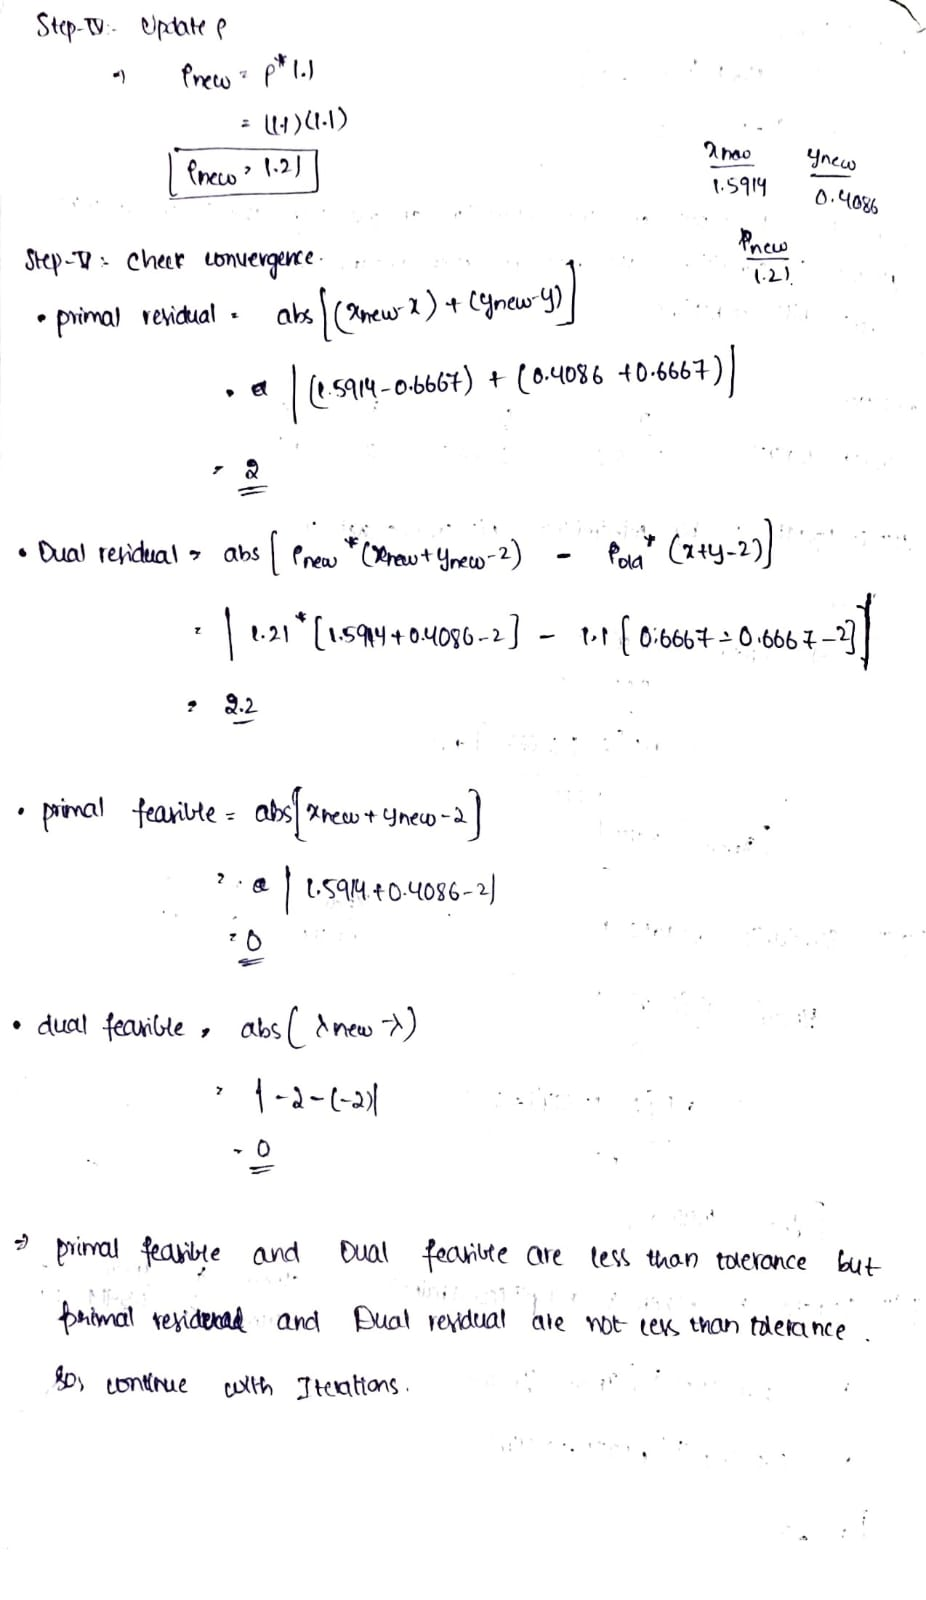 Step-IV:- Update ρ
⇒ ρnew = ρ* 1.1
= (1.1)(1.1)
ρnew = 1.21
xnew ynew
1.5914 0.4086
ρnew
1.21
Step-V:- Check convergence.
• primal residual = abs[(xnew-x) + (ynew-y)]
= |(1.5914-0.6667) + (0.4086 +0.6667)|
= 2
• Dual residual = abs[ρnew*(xnew+ynew-2) - ρold*(x+y-2)]
= |1.21*[1.5914+0.4086-2] - 1.1[0.6667-0.6667-2]|
= 2.2
• primal feasible = abs[xnew+ynew-2]
= |1.5914+0.4086-2|
= 0
• dual feasible = abs(λnew-λ)
= |-2-(-2)|
= 0
⇒ primal feasible and Dual feasible are less than tolerance but
primal residual and Dual residual are not less than tolerance.
so, continue with Iterations.